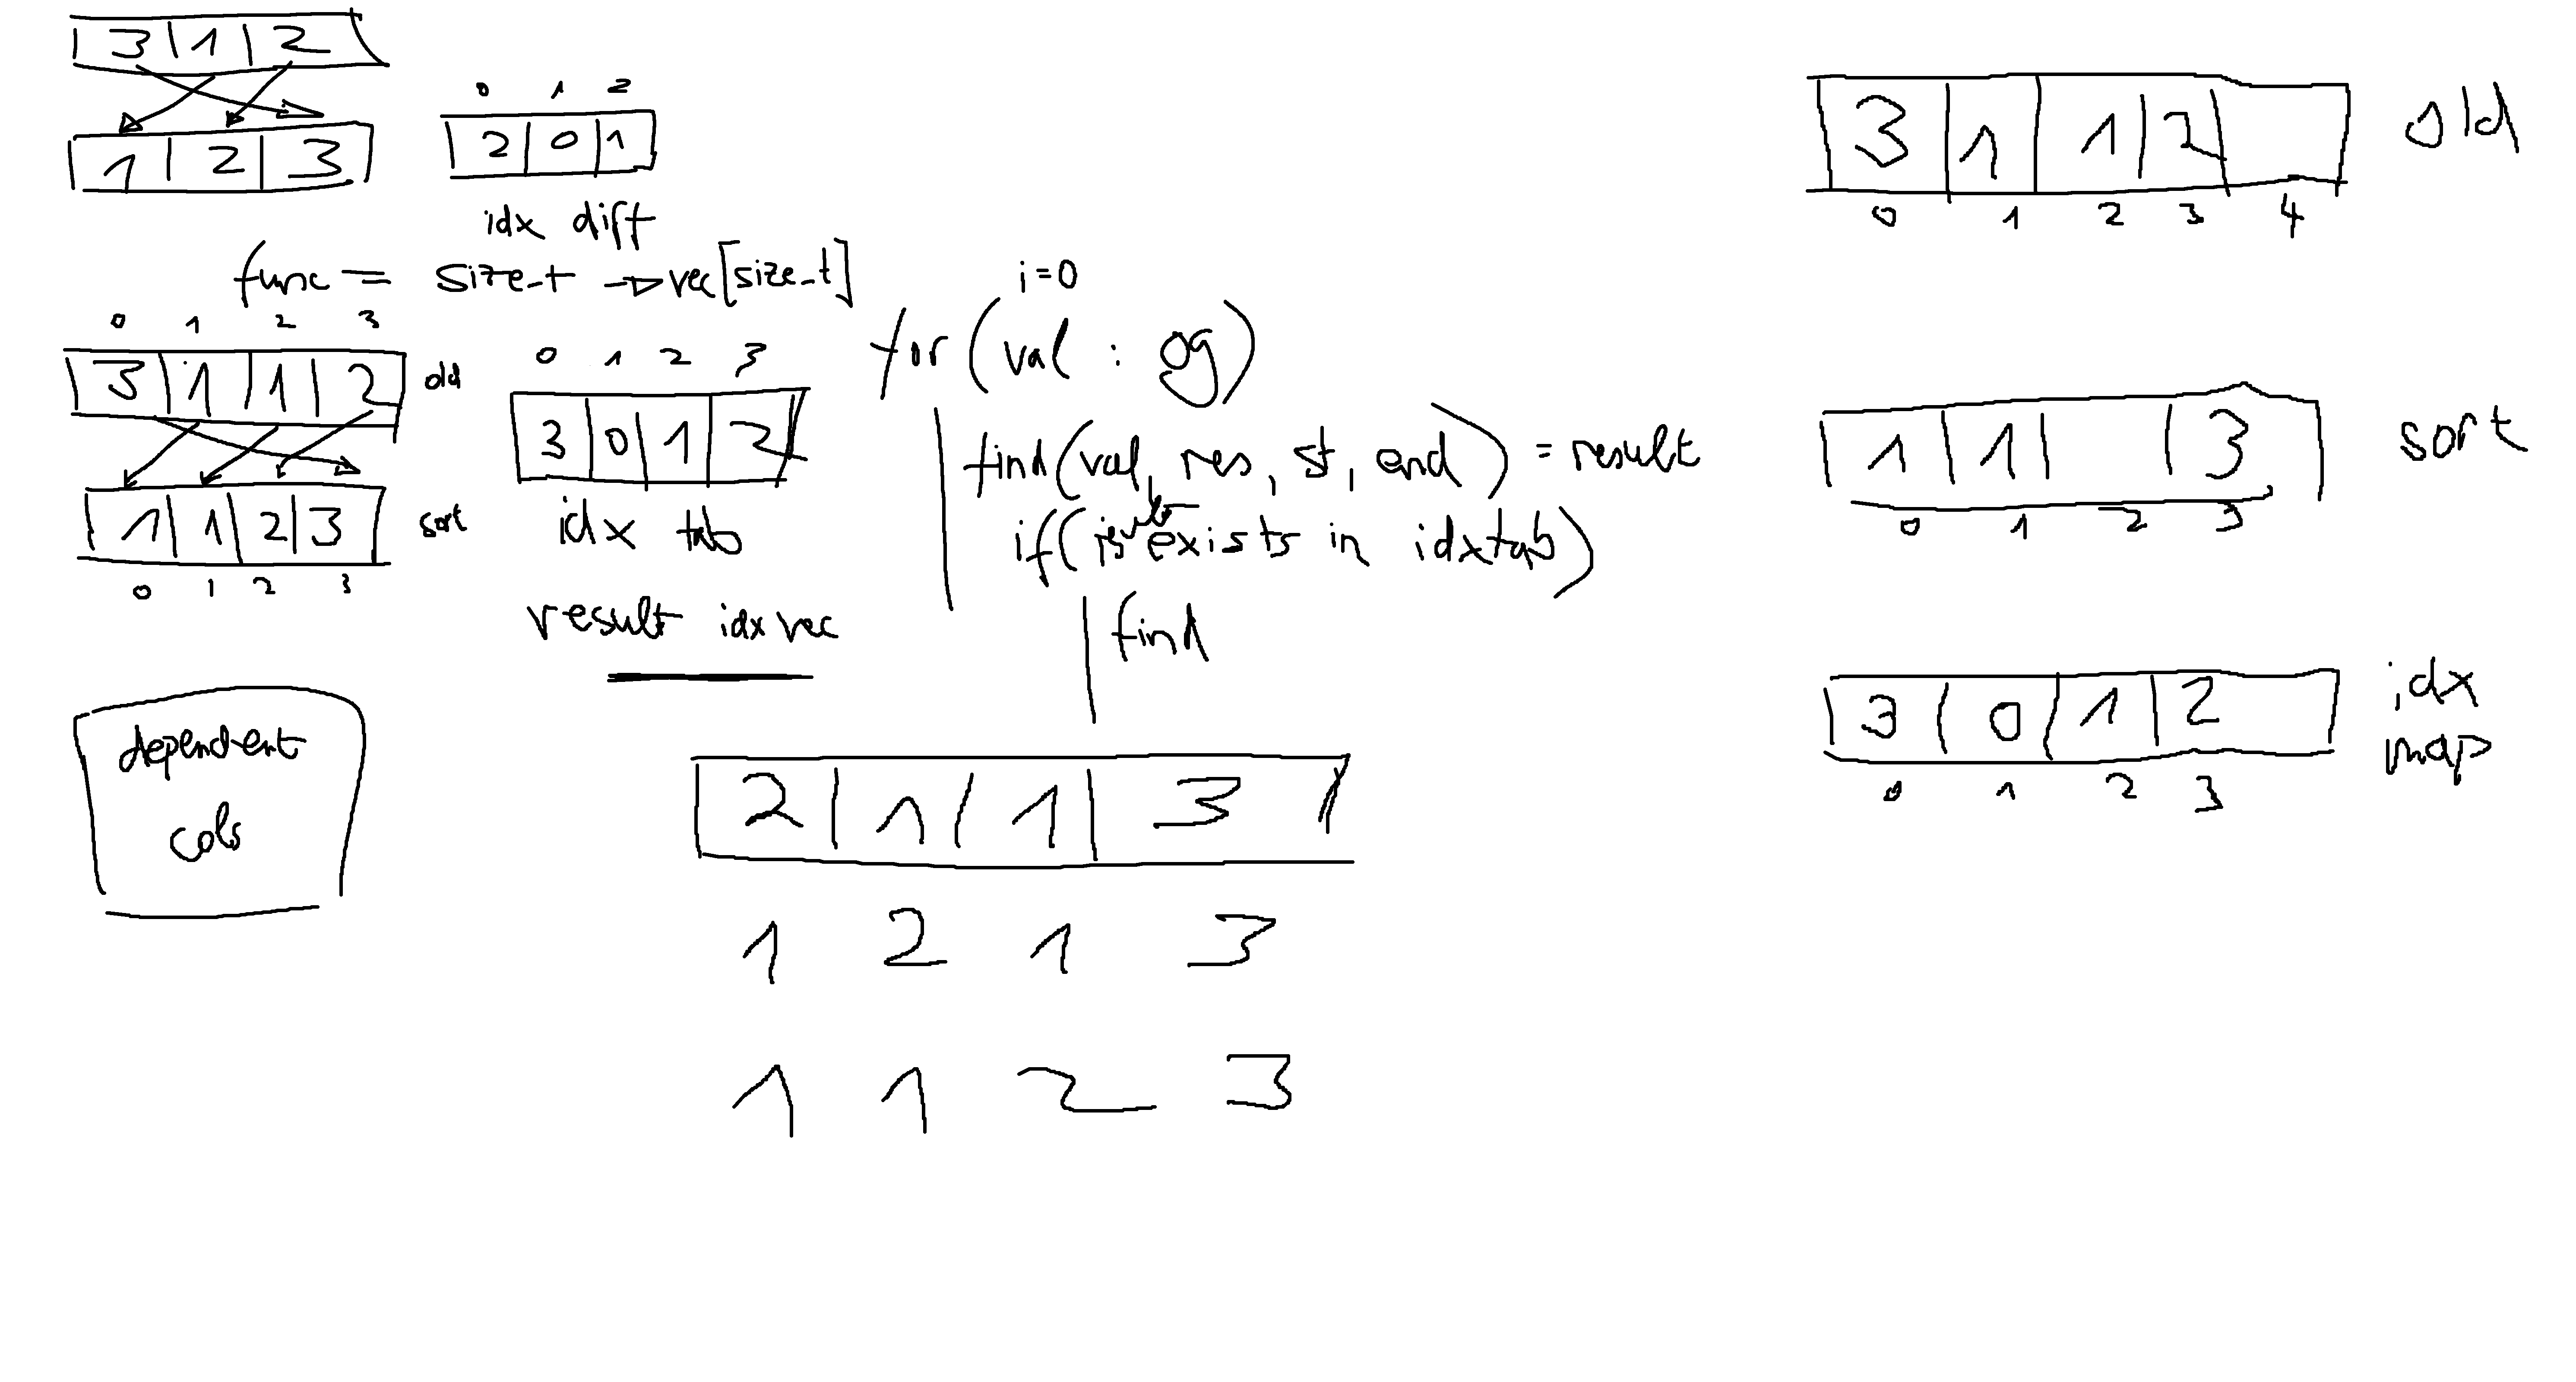 3 1 2
0 1 2
2 0 1
1 2 3
idx diff
func = size_t → vec[size_t]
0 1 2 3
3 1 1 2 old
1 1 2 3 sort
0 1 2 3
0 1 2 3
3 0 1 2
idx tab
result idx vec
dependent
cols
i=0
for (val : og)
find(val, res, st, end) = result
if( result exists in idxtab)
find
2 1 1 3
1 2 1 3
1 1 2 3
3 1 1 2 old
0 1 2 3 4
1 1 3 sort
0 1 2 3
3 0 1 2 idx
map
0 1 2 3